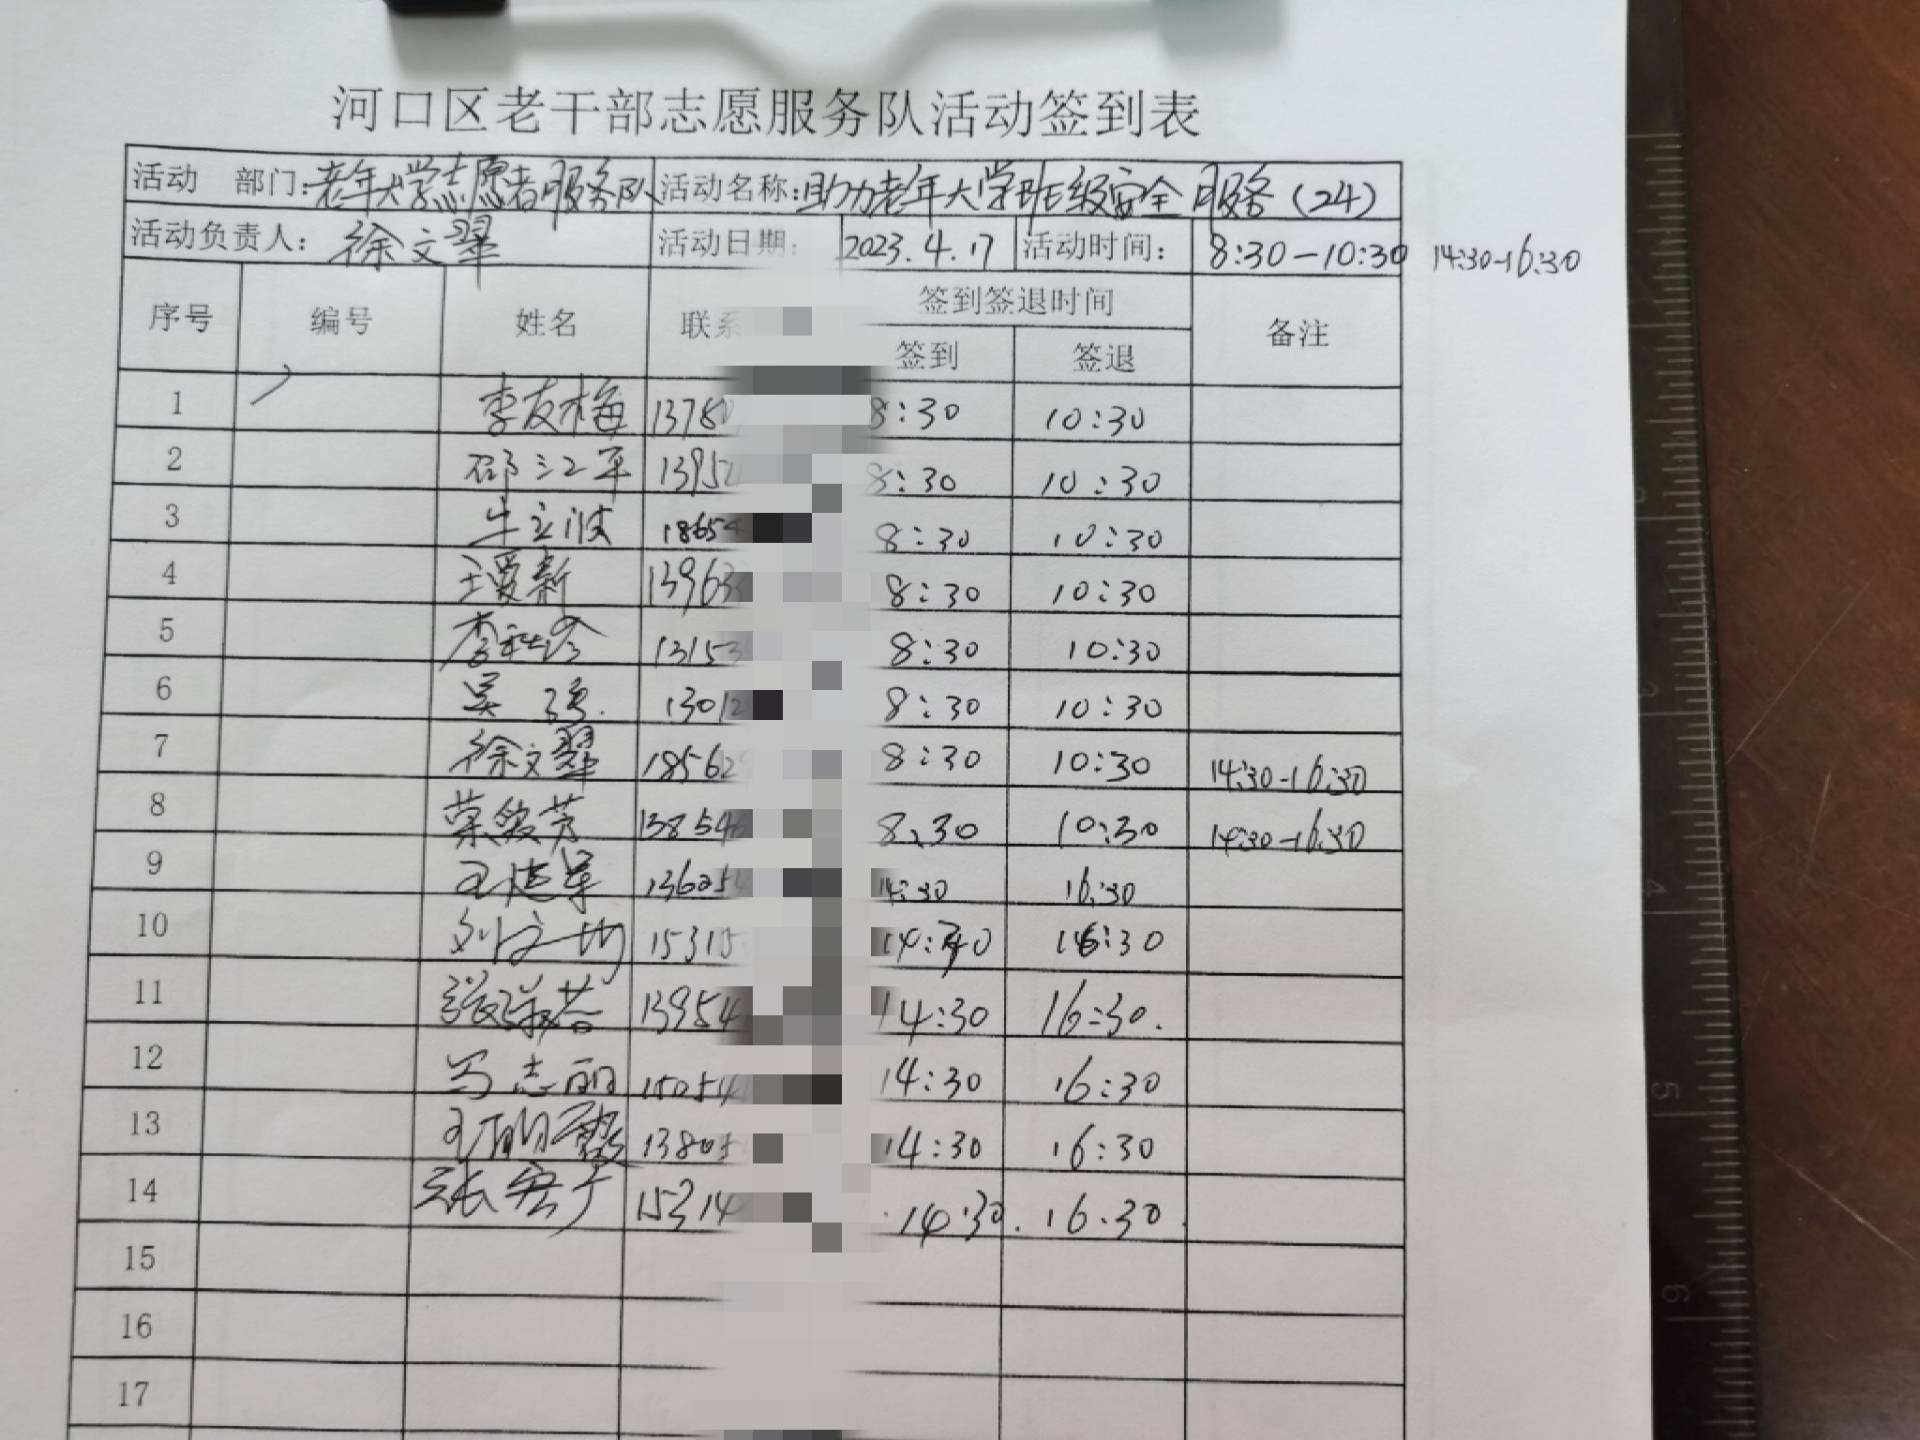 河口区老干部志愿服务队活动签到表
活动 部门:老年大学志愿者服务队 活动名称:助力老年大学班级安全服务(24)
活动负责人: 徐文翠 活动日期: 2023.4.17 活动时间: 8:30-10:30 14:30-16:30
序号 编号 姓名 联系 签到签退时间 备注
签到 签退
1 李友梅 1378 8:30 10:30
2 邵江平 1395 8:30 10:30
3 牛立波 18654 8:30 10:30
4 王爱新 13963 8:30 10:30
5 13153 8:30 10:30
6 吴强 13012 8:30 10:30
7 徐文翠 18562 8:30 10:30 14:30-16:30
8 138546 8:30 10:30 14:30-16:30
9 王建军 136054 14:30 16:30
10 15315 14:30 16:30
11 13954 14:30 16:30.
12 马志丽 15054 14:30 16:30
13 13805 14:30 16:30
14 15314 14:30. 16:30.
15
16
17